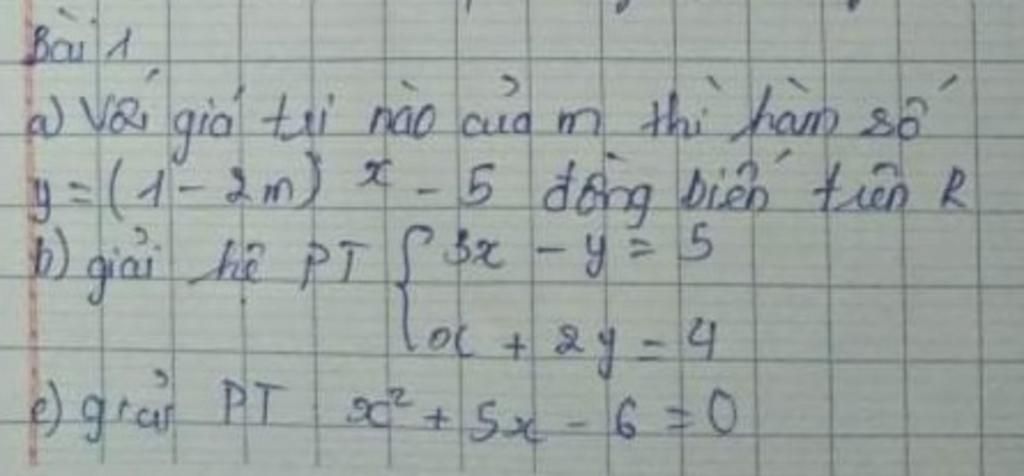 Bài 1
a) Với giá trị nào của m thì hàm số
y = (1 - 2m) x - 5 đồng biến trên R
b) giải hệ PT { 3x - y = 5
x + 2y = 4
c) giải PT x² + 5x - 6 = 0